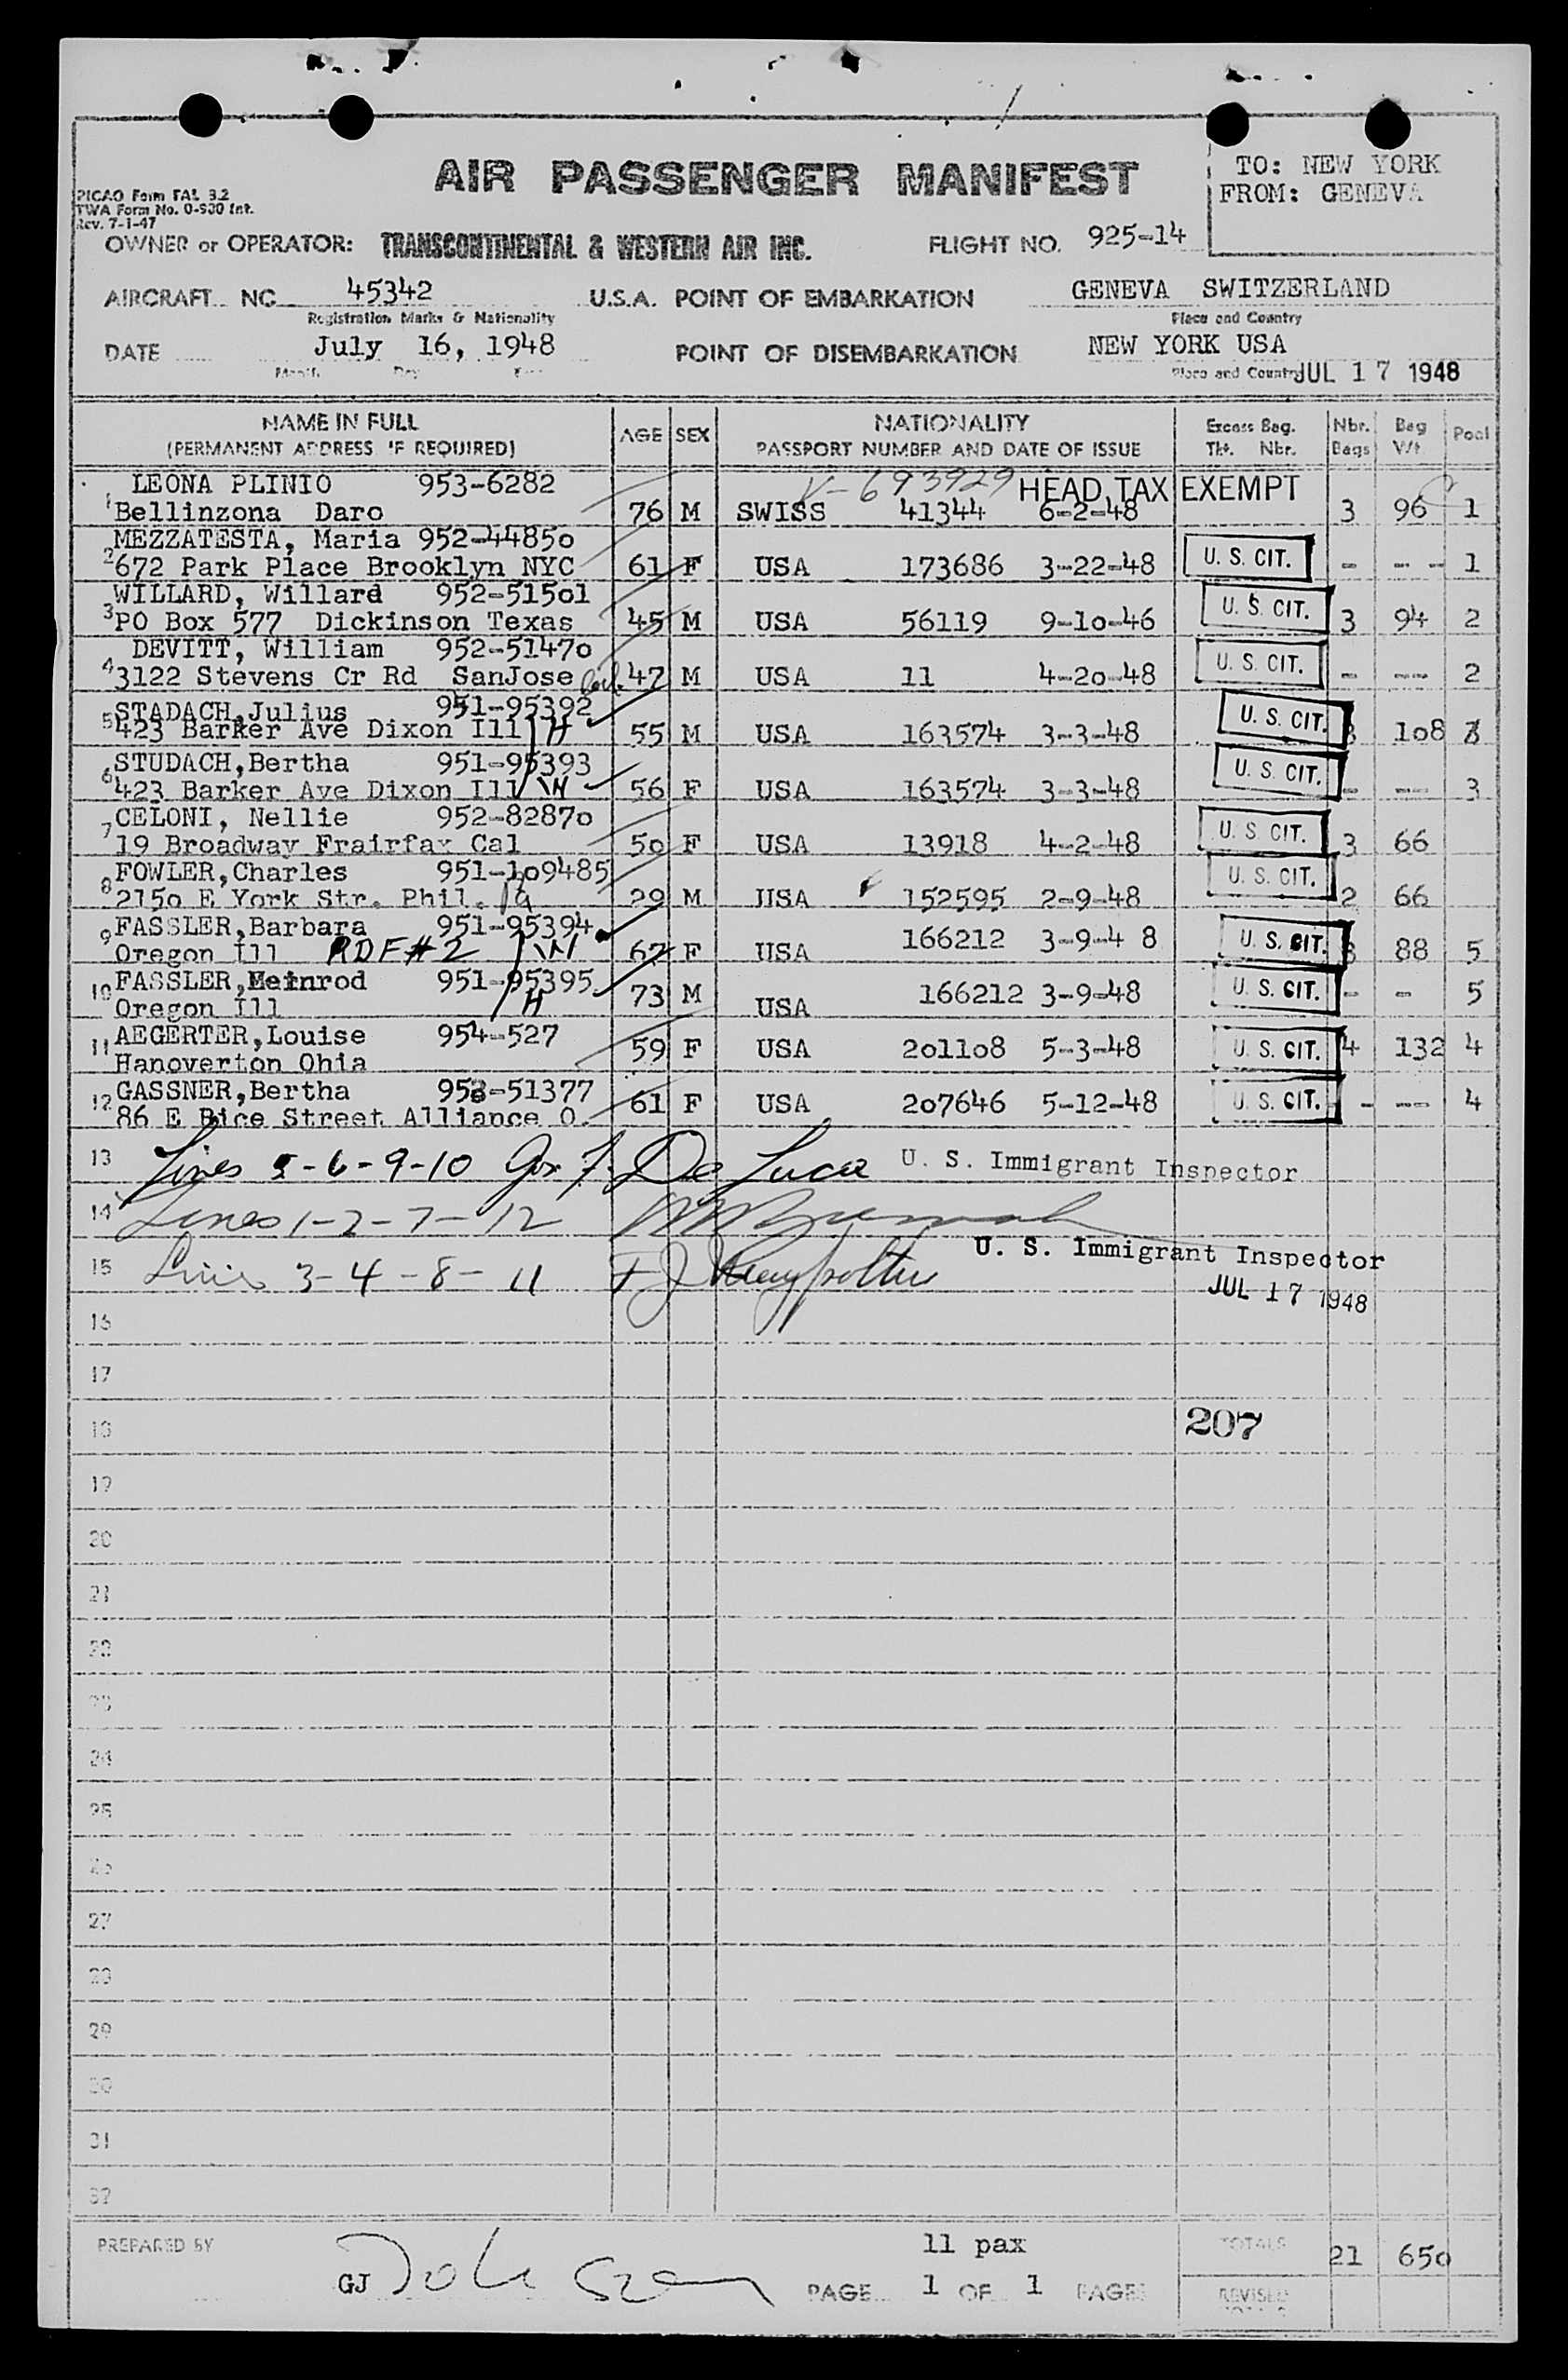 AIR PASSENGER MANIFEST
TO: NEW YORK
FROM: GENEVA
PICAO Form FAL 3.2
TWA Form No. O-900 Int.
Rev. 7-1-47
OWNER or OPERATOR: TRANSCONTINENTAL & WESTERN AIR INC. FLIGHT NO. 925-14
AIRCRAFT NC 45342 U.S.A. POINT OF EMBARKATION GENEVA SWITZERLAND
Registration Marks & Nationality Place and Country
DATE July 16, 1948 POINT OF DISEMBARKATION NEW YORK USA
Month Day Year Place and Country JUL 17 1948
NAME IN FULL AGE SEX NATIONALITY Excess Bag. Nbr. Bag Pool
(PERMANENT ADDRESS IF REQUIRED) PASSPORT NUMBER AND DATE OF ISSUE Tkt. Nbr. Bags Wt.
LEONA PLINIO 953-6282 V-693929 HEAD TAX EXEMPT
1 Bellinzona Daro 76 M SWISS 41344 6-2-48 3 96 1
MEZZATESTA, Maria 952-44850
2 672 Park Place Brooklyn NYC 61 F USA 173686 3-22-48 U. S. CIT. - --- 1
WILLARD, Willard 952-51501
3 PO Box 577 Dickinson Texas 45 M USA 56119 9-10-46 U. S. CIT. 3 94 2
DEVITT, William 952-51470
4 3122 Stevens Cr Rd SanJose Cal. 47 M USA 11 4-20-48 U. S. CIT. - --- 2
5 STADACH, Julius 951-95392
423 Barker Ave Dixon Ill H 55 M USA 163574 3-3-48 U. S. CIT. 3 108 3
STUDACH, Bertha 951-95393
6 423 Barker Ave Dixon Ill W 56 F USA 163574 3-3-48 U. S. CIT. - --- 3
CELONI, Nellie 952-82870
7 19 Broadway Frairfax Cal 50 F USA 13918 4-2-48 U. S. CIT. 3 66
FOWLER,Charles 951-109485
8 2150 E York Str. Phil. Pa 29 M USA 152595 2-9-48 U. S. CIT. 2 66
9 FASSLER,Barbara 951-95394
Oregon Ill RDF#2 W 67 F USA 166212 3-9-4 8 U. S. CIT. 3 88 5
10 FASSLER,Meinrod 951-95395
Oregon Ill H 73 M USA 166212 3-9-48 U. S. CIT. - - 5
11 AEGERTER,Louise 954-527
Hanoverton Ohia 59 F USA 201108 5-3-48 U. S. CIT. 4 132 4
12 GASSNER,Bertha 953-51377
86 E Bice Street Alliance O. 61 F USA 207646 5-12-48 U. S. CIT. - --- 4
13 Lines 5-6-9-10 De Luca U. S. Immigrant Inspector
14 Lines 1-2-7-12
U. S. Immigrant Inspector
15 Lines 3-4-8-11 F J
JUL 17 1948
16
17
18 207
19
20
21
22
23
24
25
26
27
28
29
30
31
32
PREPARED BY GJ 11 pax TOTALS 21 650
PAGE 1 OF 1 PAGES REVISED